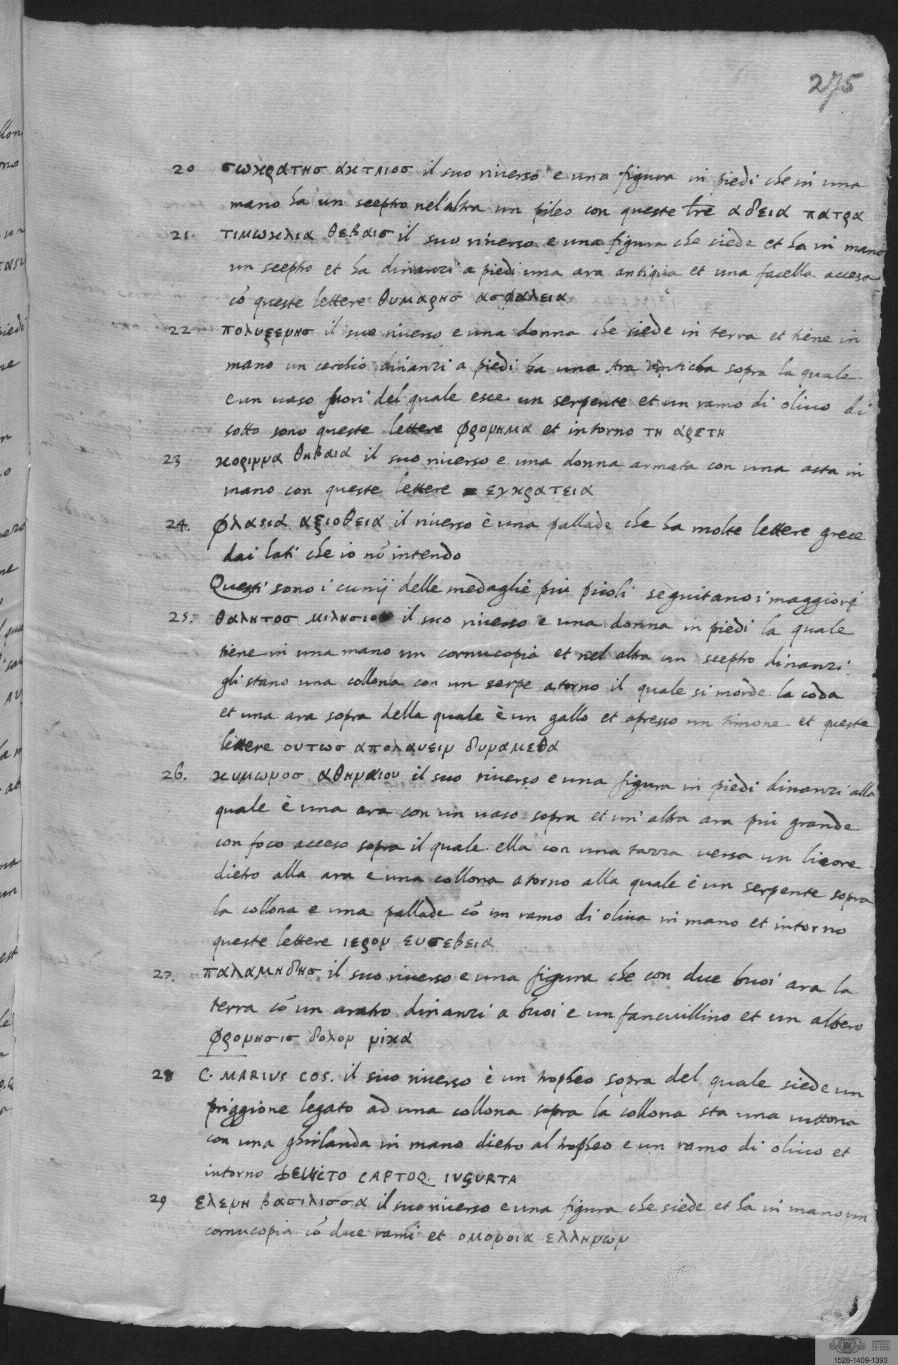 275
20 σωκρατησ ακτλιοσ il suo riuerso e una figura in piedi che in una
mano ha un sceptro nel altra un pileo con queste lr̃e αδεια πατρα
21. τιμωκλια θεβαισ il suo riuerso e una figura che siede et ha in mano
un sceptro et ha dinanzi a piedi una ara antiqua et una facella accesa
cõ queste lettere θυμαρησ ασφαλεια
22 πολυξενησ il suo riuerso e una donna che siede in terra et tiene in
mano un cerchio dinanzi a piedi ha una ara anticha sopra la quale
e un uaso fuori del quale esce un serpente et un ramo di oliuo di
sotto sono queste lettere φρονημα et intorno τη αρετη
23 κορινμα θηβαια il suo riuerso e una donna armata con una asta in
mano con queste lettere εγκρατεια
24. φλασια αξιοθεια il riuerso è una pallade che ha molte lettere grece
dai lati che io nõ intendo
Questi sono i cunij delle medaglie piu picoli seguitano i maggiori
25. θαλητοσ μιλησιου il suo riuerso e una donna in piedi la quale
tiene in una mano un cornucopia et nel altra un sceptro dinanzi
gli stano una collona con un serpe atorno il quale si morde la coda
et una ara sopra della quale è un gallo et apresso un timone et queste
lettere ουτωσ απολαυειν δυναμεθα
26. κυμωνοσ αθηναιου il suo riuerso e una figura in piedi dinanzi alla
quale è una ara con un uaso sopra et un' altra ara piu grande
con foco acceso sopra il quale ella con una tazza versa un licore
dietro alla ara e una collona atorno alla quale è un serpente sopra
la collona e una pallade cõ un ramo di oliua in mano et intorno
queste lettere ιερον ευσεβεια
27. παλαμηδησ il suo riuerso e una figura che con due buoi ara la
terra cõ un aratro dinanzi a buoi e un fanciullino et un albero
φρονησισ δολον νικα
28 C. MARIUS COS. il suo riuerso è un tropheo sopra del quale siede un
priggione legato ad una collona sopra la collona sta una uittoria
con una ghirlanda in mano dietro al tropheo e un ramo di oliuo et
intorno DEUICTO CAPTOQ. IUGURTA
29 ελενη βασιλισσα il suo riuerso e una figura che siede et ha in mano un
cornucopia cõ due rami et ομονοια ελληνων
1528-1409-1393